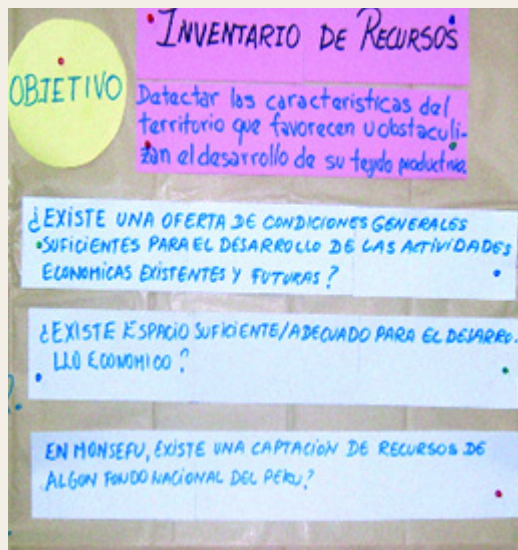 INVENTARIO DE RECURSOS
OBJETIVO
Detectar las caracteristicas del
territorio que favorecen u obstaculi-
zan el desarrollo de su tejido productivo.
¿EXISTE UNA OFERTA DE CONDICIONES GENERALES
SUFICIENTES PARA EL DESARROLLO DE LAS ACTIVIDADES
ECONOMICAS EXISTENTES Y FUTURAS?
¿EXISTE ESPACIO SUFICIENTE/ADECUADO PARA EL DESARRO-
LLO ECONOMICO?
EN MONSEFU, EXISTE UNA CAPTACIÓN DE RECURSOS DE
ALGON FONDO NACIONAL DEL PERU?